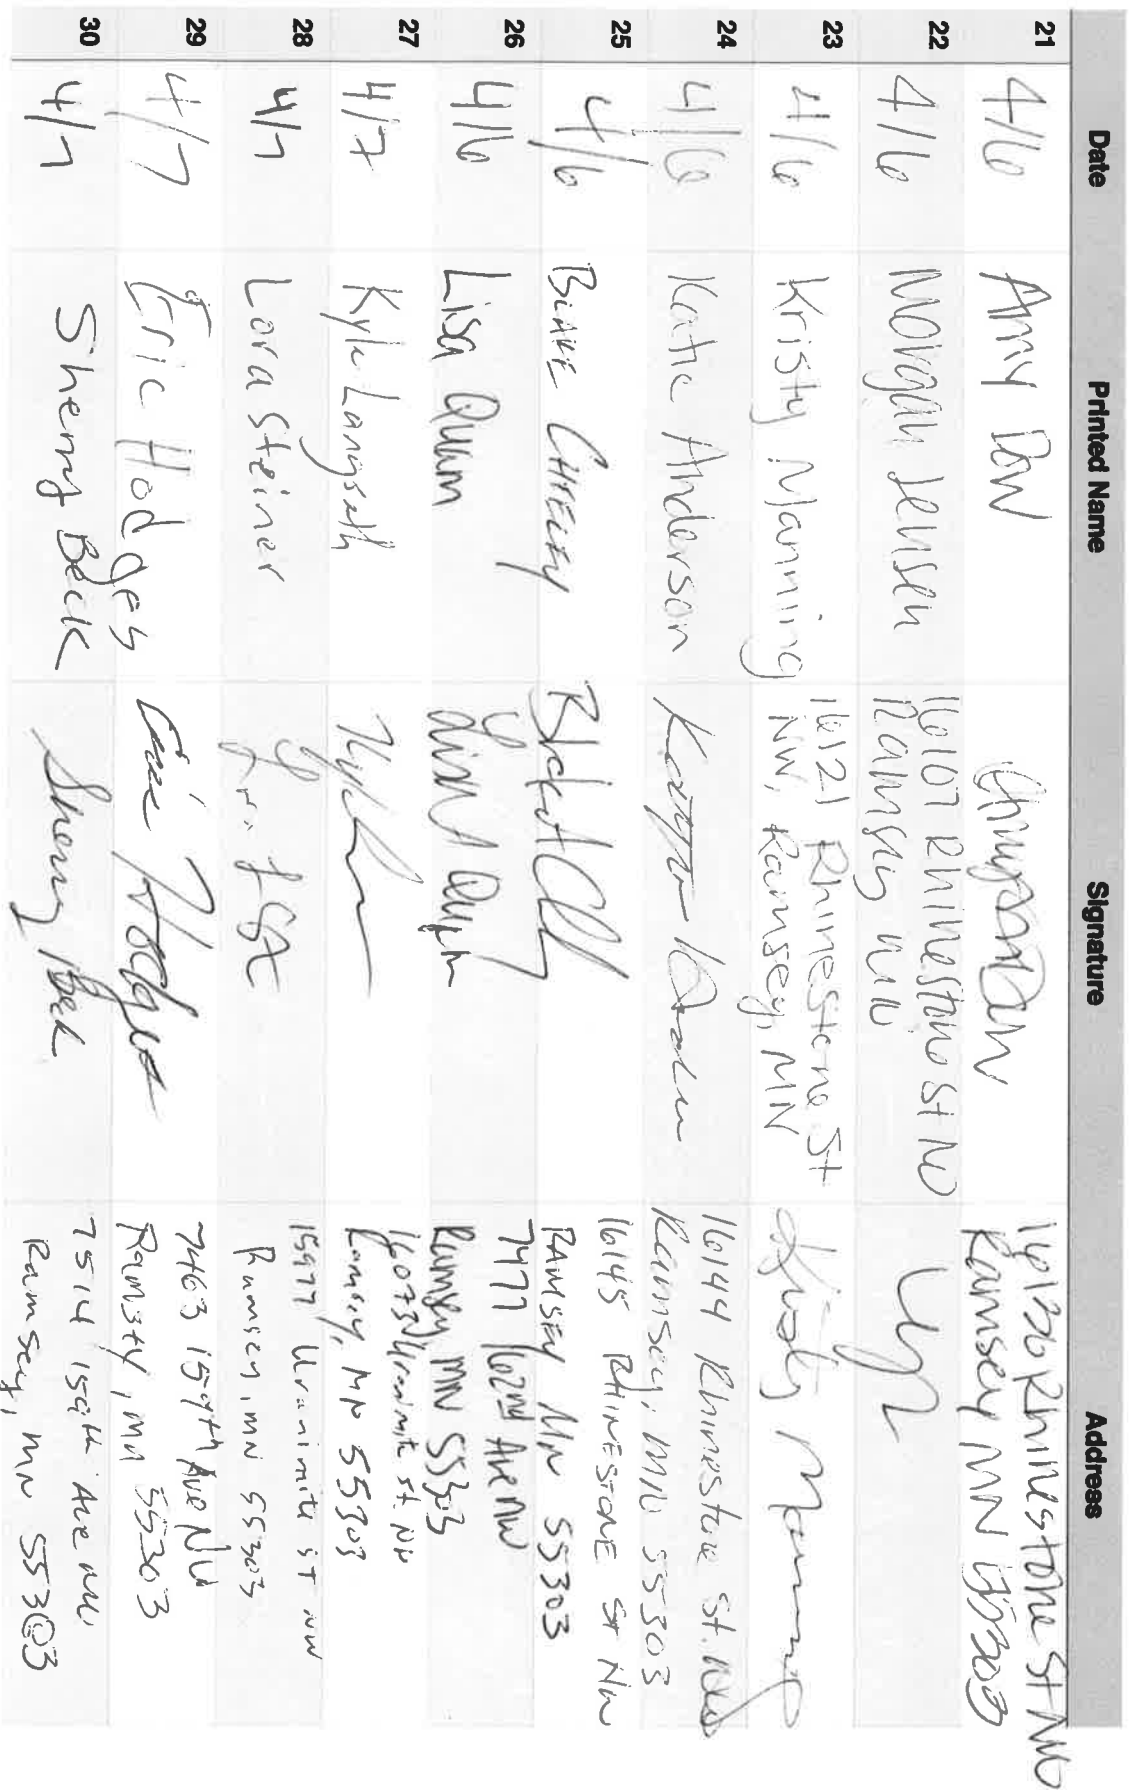 Date Printed Name Signature Address
21 4/6 Amy Dow Rhinestone St NW
Ramsey MN 55303
22 4/6 Morgan Jensen 16107 Rhinestone St NW
Ramsey MN
23 4/6 Kristy Manning 16121 Rhinestone St
NW, Ramsey, MN Kristy Manning
24 4/6 Katie Anderson 16144 Rhinestone St. NW
Ramsey, MN 55303
25 4/6 BLAKE 16145 RHINESTONE ST NW
RAMSEY MN 55303
26 4/6 Lisa Quam Lisa Quam 7477 162nd Ave NW
Ramsey MN 55303
27 4/7 Kyle Langseth 16073 Uranimite St NW
Ramsey, MN 55303
28 4/7 Lora Steiner 15977 Uranimite ST NW
Ramsey, MN 55303
29 4/7 Eric Hodges Eric Hodges 7463 159th Ave NW
Ramsey, MN 55303
30 4/7 Sherry Beck Sherry Beck 7514 159th Ave NW
Ramsey, MN 55303